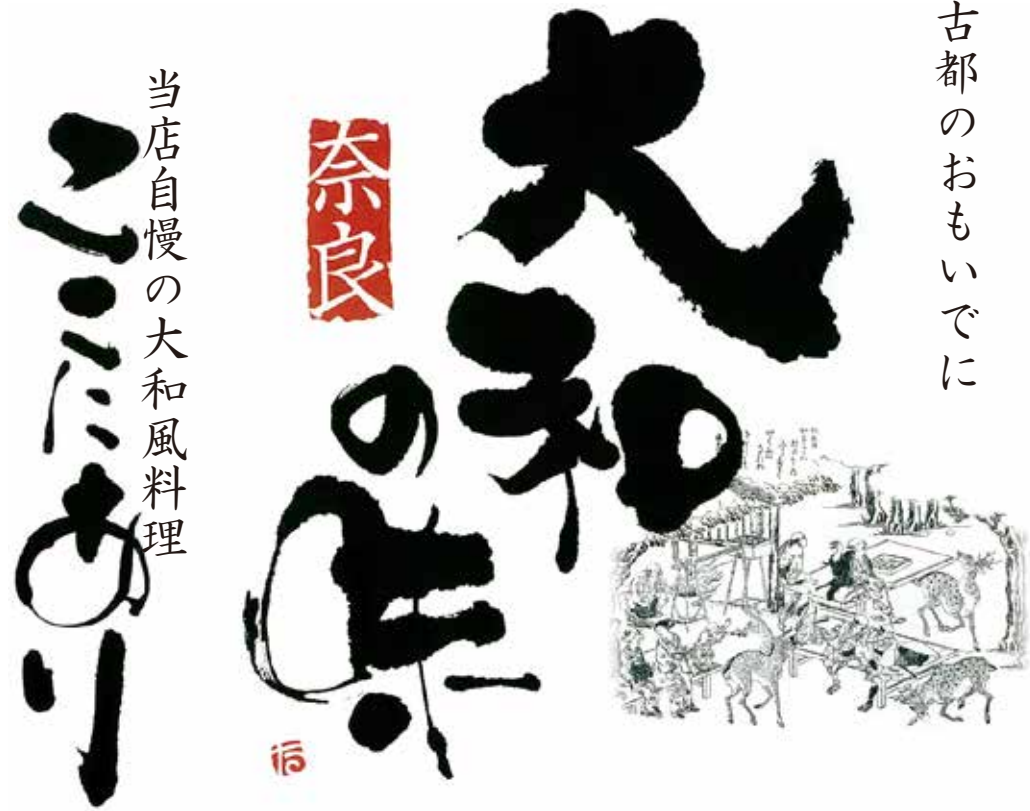 古都のおもいでに
大和
の味
奈良
当店自慢の大和風料理
ここにあり